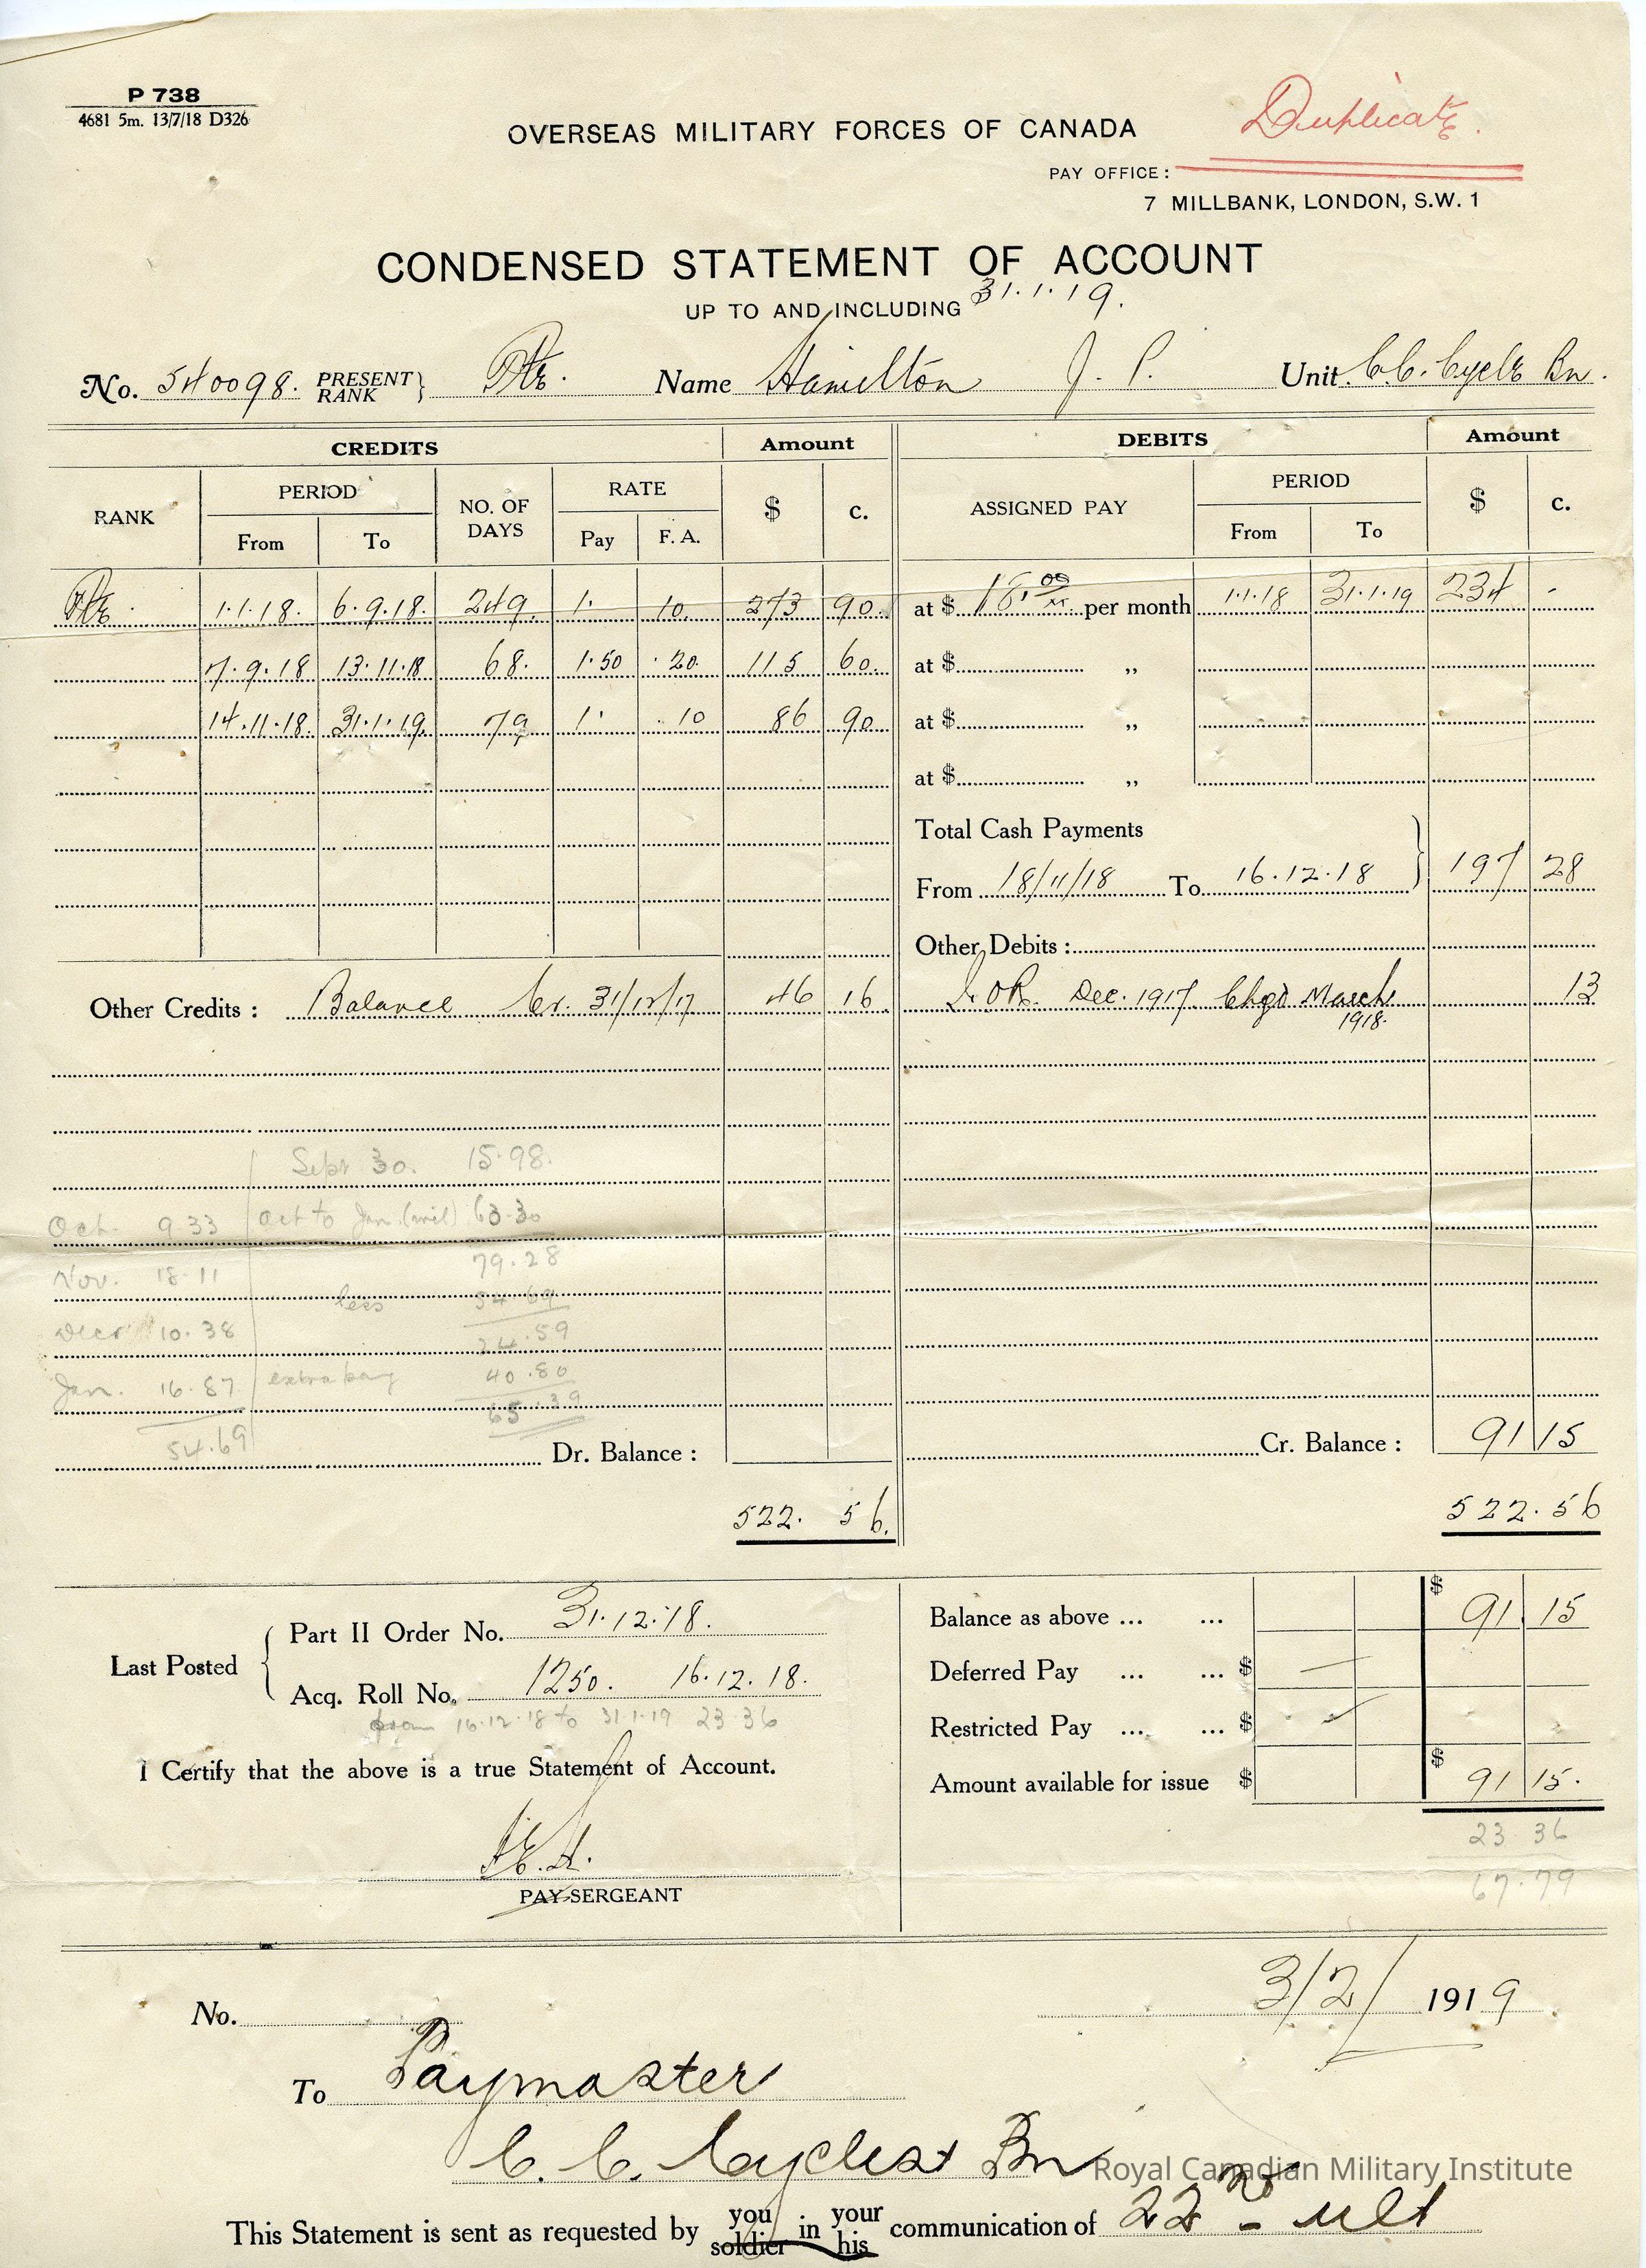 P 738
4681 5m. 13/7/18 D326
Duplicate.
OVERSEAS MILITARY FORCES OF CANADA
PAY OFFICE:
7 MILLBANK, LONDON, S.W. 1
CONDENSED STATEMENT OF ACCOUNT
UP TO AND INCLUDING 31.1.19.
No. 540098. PRESENT RANK } Pte. Name Hamilton J. P. Unit C.C. Cycle Bn.
CREDITS Amount DEBITS Amount
RANK PERIOD NO. OF DAYS RATE $ c. ASSIGNED PAY PERIOD $ c.
From To Pay F. A. From To
Pte. 1.1.18. 6.9.18. 249. 1. 10. 273 90. at $ 18.00 per month 1.1.18 31.1.19 234 -
7.9.18 13.11.18 68. 1.50 .20. 115 60. at $ „
14.11.18. 31.1.19. 79 1. .10 86 90. at $ „
at $ „
Total Cash Payments
From 18/11/18 To 16.12.18 } 197 28
Other Debits :
Other Credits : Balance Cr. 31/12/17 46 16. Dec. 1917 Chgd March 1918. 13
Sept 30. 15.98.
Oct. 9.33 Oct to Jan. 63.30
79.28
Nov. 18.11
less 54.69
Decr 10.38
24.59
Jan. 16.87 extra pay 40.80
65.39
54.69
Dr. Balance : Cr. Balance : 91 15
522. 56. 522.56
Last Posted { Part II Order No. 31.12.18.
Acq. Roll No. 1250. 16.12.18.
from 16.12.18 to 31.1.19 23.36
I Certify that the above is a true Statement of Account.
PAY SERGEANT
Balance as above ... ... $ 91 15
Deferred Pay ... ... $ —
Restricted Pay ... ... $
Amount available for issue $ $ 91 15.
23 36
67.79
No. 3/2/ 1919.
To Paymaster
C. C. Cyclist Bn
Royal Canadian Military Institute
This Statement is sent as requested by you soldier in your his communication of 22nd ult